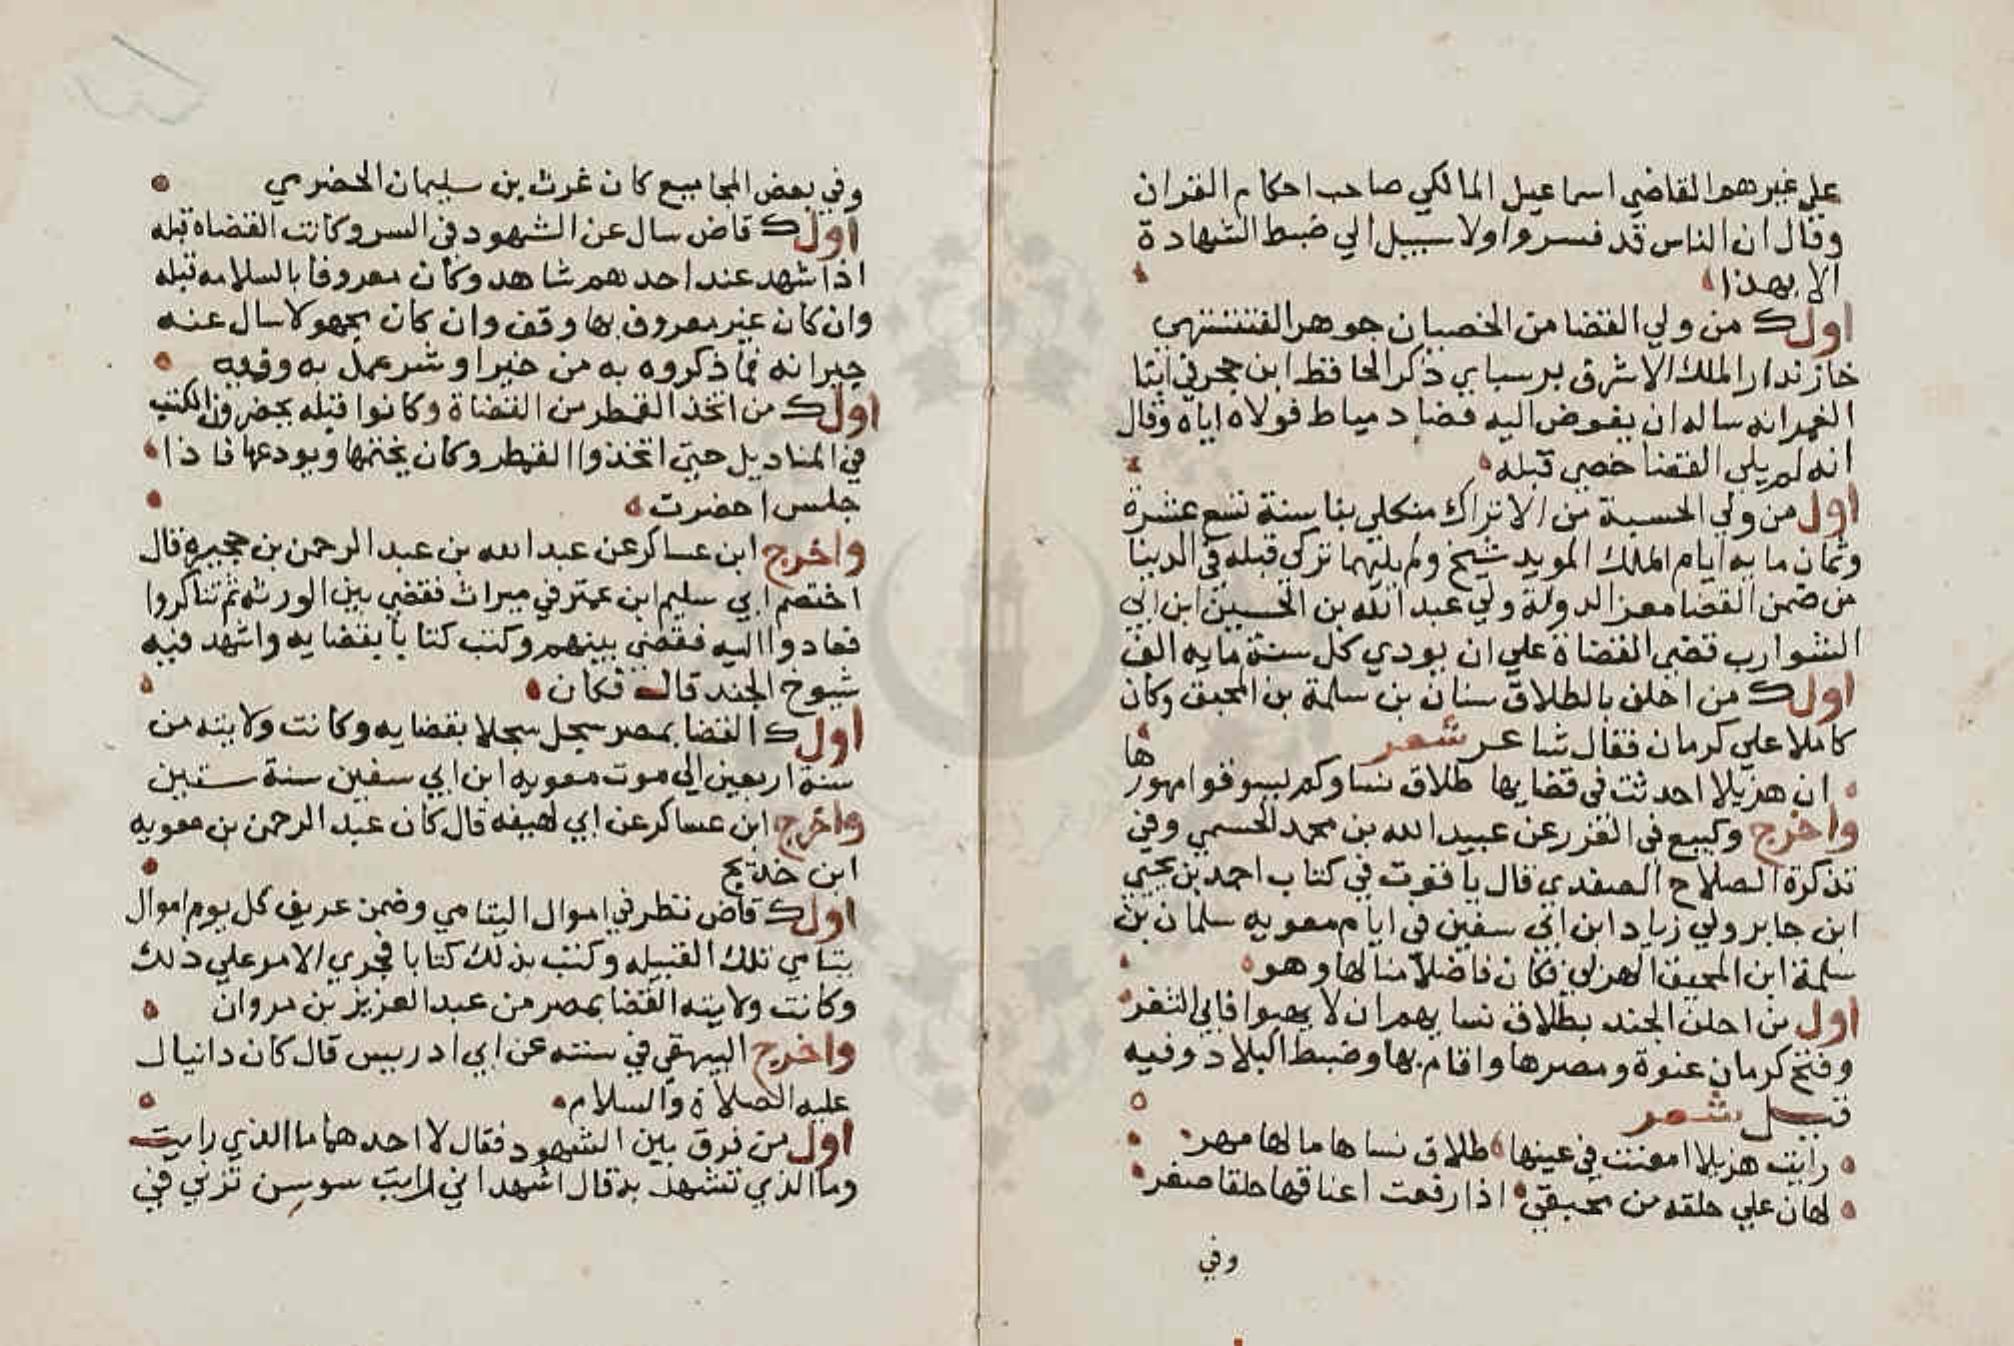 علي غيرهم القاضي اسماعيل المالكي صاحب احكام القران
وقال ان الناس قد فسروا ولا سبيل الي ضبط الشهادة
الا بهذا
اول من ولي القضا من الخصيان جوهر
خازندار الملك الاشرق برسباي ذكر الحافظ ابن حجر في انبا
الغمر انه ساله ان يفوض اليه قضا دمياط فولاه اياه وقال
انه لم يلي القضا خصي قبله
اول من ولي الحسبة من الاتراك منكلي بغا سنة تسع عشرة
وثمان مايه ايام الملك المويد شيخ ولم يليهما تركي قبله في الدنيا
من ضمن القضا معز الدولة ولي عبد الله بن الحسين ابن ابي
الشوارب قضي القضاة علي ان يودي كل سنة مايه الف
اول من احلف بالطلاق سنان بن سلمة بن المحبق وكان
كاملا علي كرمان فقال شاعر شعر
ان هزيلا احدثت في قضايها طلاق نسا وكم ليسوقوا مهورها
واخرج وكيع في الغرر عن عبيد الله بن محمد الحسمي وفي
تذكرة الصلاح الصفدي قال ياقوت في كتاب احمد بن يحيي
ابن جابر ولي زياد ابن ابي سفين في ايام معويه سلمان بن
سلمة ابن المحبق الهزلي فكان فاضلا منالها وهو
اول من احلف الجند بطلاق نسايهم ان لا يهبوا فاتي الثغر
وفتح كرمان عنوة ومصرها واقام بها وضبط البلاد وفيه
قيل شعر
رايت هزيلا امعنت في عينها طلاق نساها ما لها مهر
لهان علي حلقه من محبقي اذا رفعت اعناقها حلقا صفر
وفي
وفي بعض المجاميع كان غرث بن سليمان الحضرمي
اول قاض سال عن الشهود في السر وكانت القضاه قبله
اذا شهد عند احدهم شاهد وكان معروفا بالسلامه قبله
وان كان غير معروف بها وقف وان كان يجهولا سال عنه
جيرانه فما ذكروه به من خير او شر عمل به وفيه
اول من اتخذ القمطر من القضاة وكانوا قبله يحضرون الكتب
في المناديل حتي اتخذوا القمطر وكان يختمها ويودعها فاذا
جلس احضرت
واخرج ابن عساكر عن عبد الله بن عبد الرحمن بن حجيرة قال
اختصم الي سليم ابن عمتر في ميراث فقضي بين الورثه ثم تناكروا
فعادوا اليه فقضي بينهم وكتب كتابا بقضايه واشهد فيه
شيوخ الجند قال فكان
اول القضا بمصر سجل سجلا بقضايه وكانت ولايته من
سنة اربعين الي موت معويه ابن ابي سفين سنة ستين
واخرج ابن عساكر عن ابي لهيفه قال كان عبد الرحمن بن معويه
ابن خديج
اول قاض نظر في اموال اليتامي وضمن عريف كل يوم اموال
يتامي تلك القبيله وكتب بذلك كتابا فجري الامر علي ذلك
وكانت ولايته القضا بمصر من عبد العزيز بن مروان
واخرج البيهقي في سننه عن ابي ادريس قال كان دانيال
عليه الصلاة والسلام
اول من فرق بين الشهود فقال لاحدهما ما الذي رايت
وما الذي تشهد به قال اشهد اني رايت سوسن تزني في